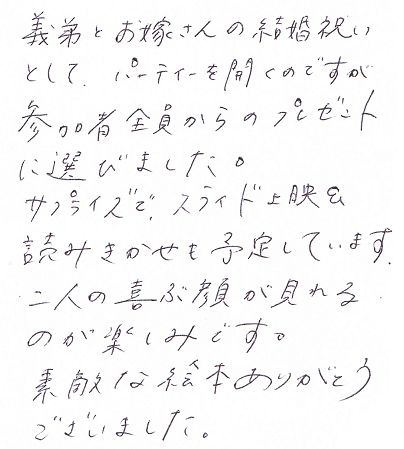 義弟とお嫁さんの結婚祝い
として、パーティーを開くのですが
参加者全員からのプレゼント
に選びました。
サプライズで、スライド上映&
読みきかせも予定しています。
二人の喜ぶ顔が見れる
のが楽しみです。
素敵な絵本ありがとう
ございました。